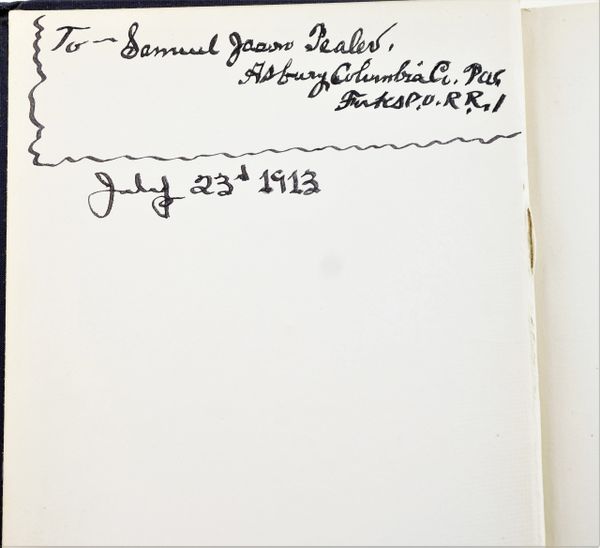 To — Samuel Jason Pealer.
Asbury, Columbia Co. Pa.
Forks P.O. R R. 1
July 23d 1913